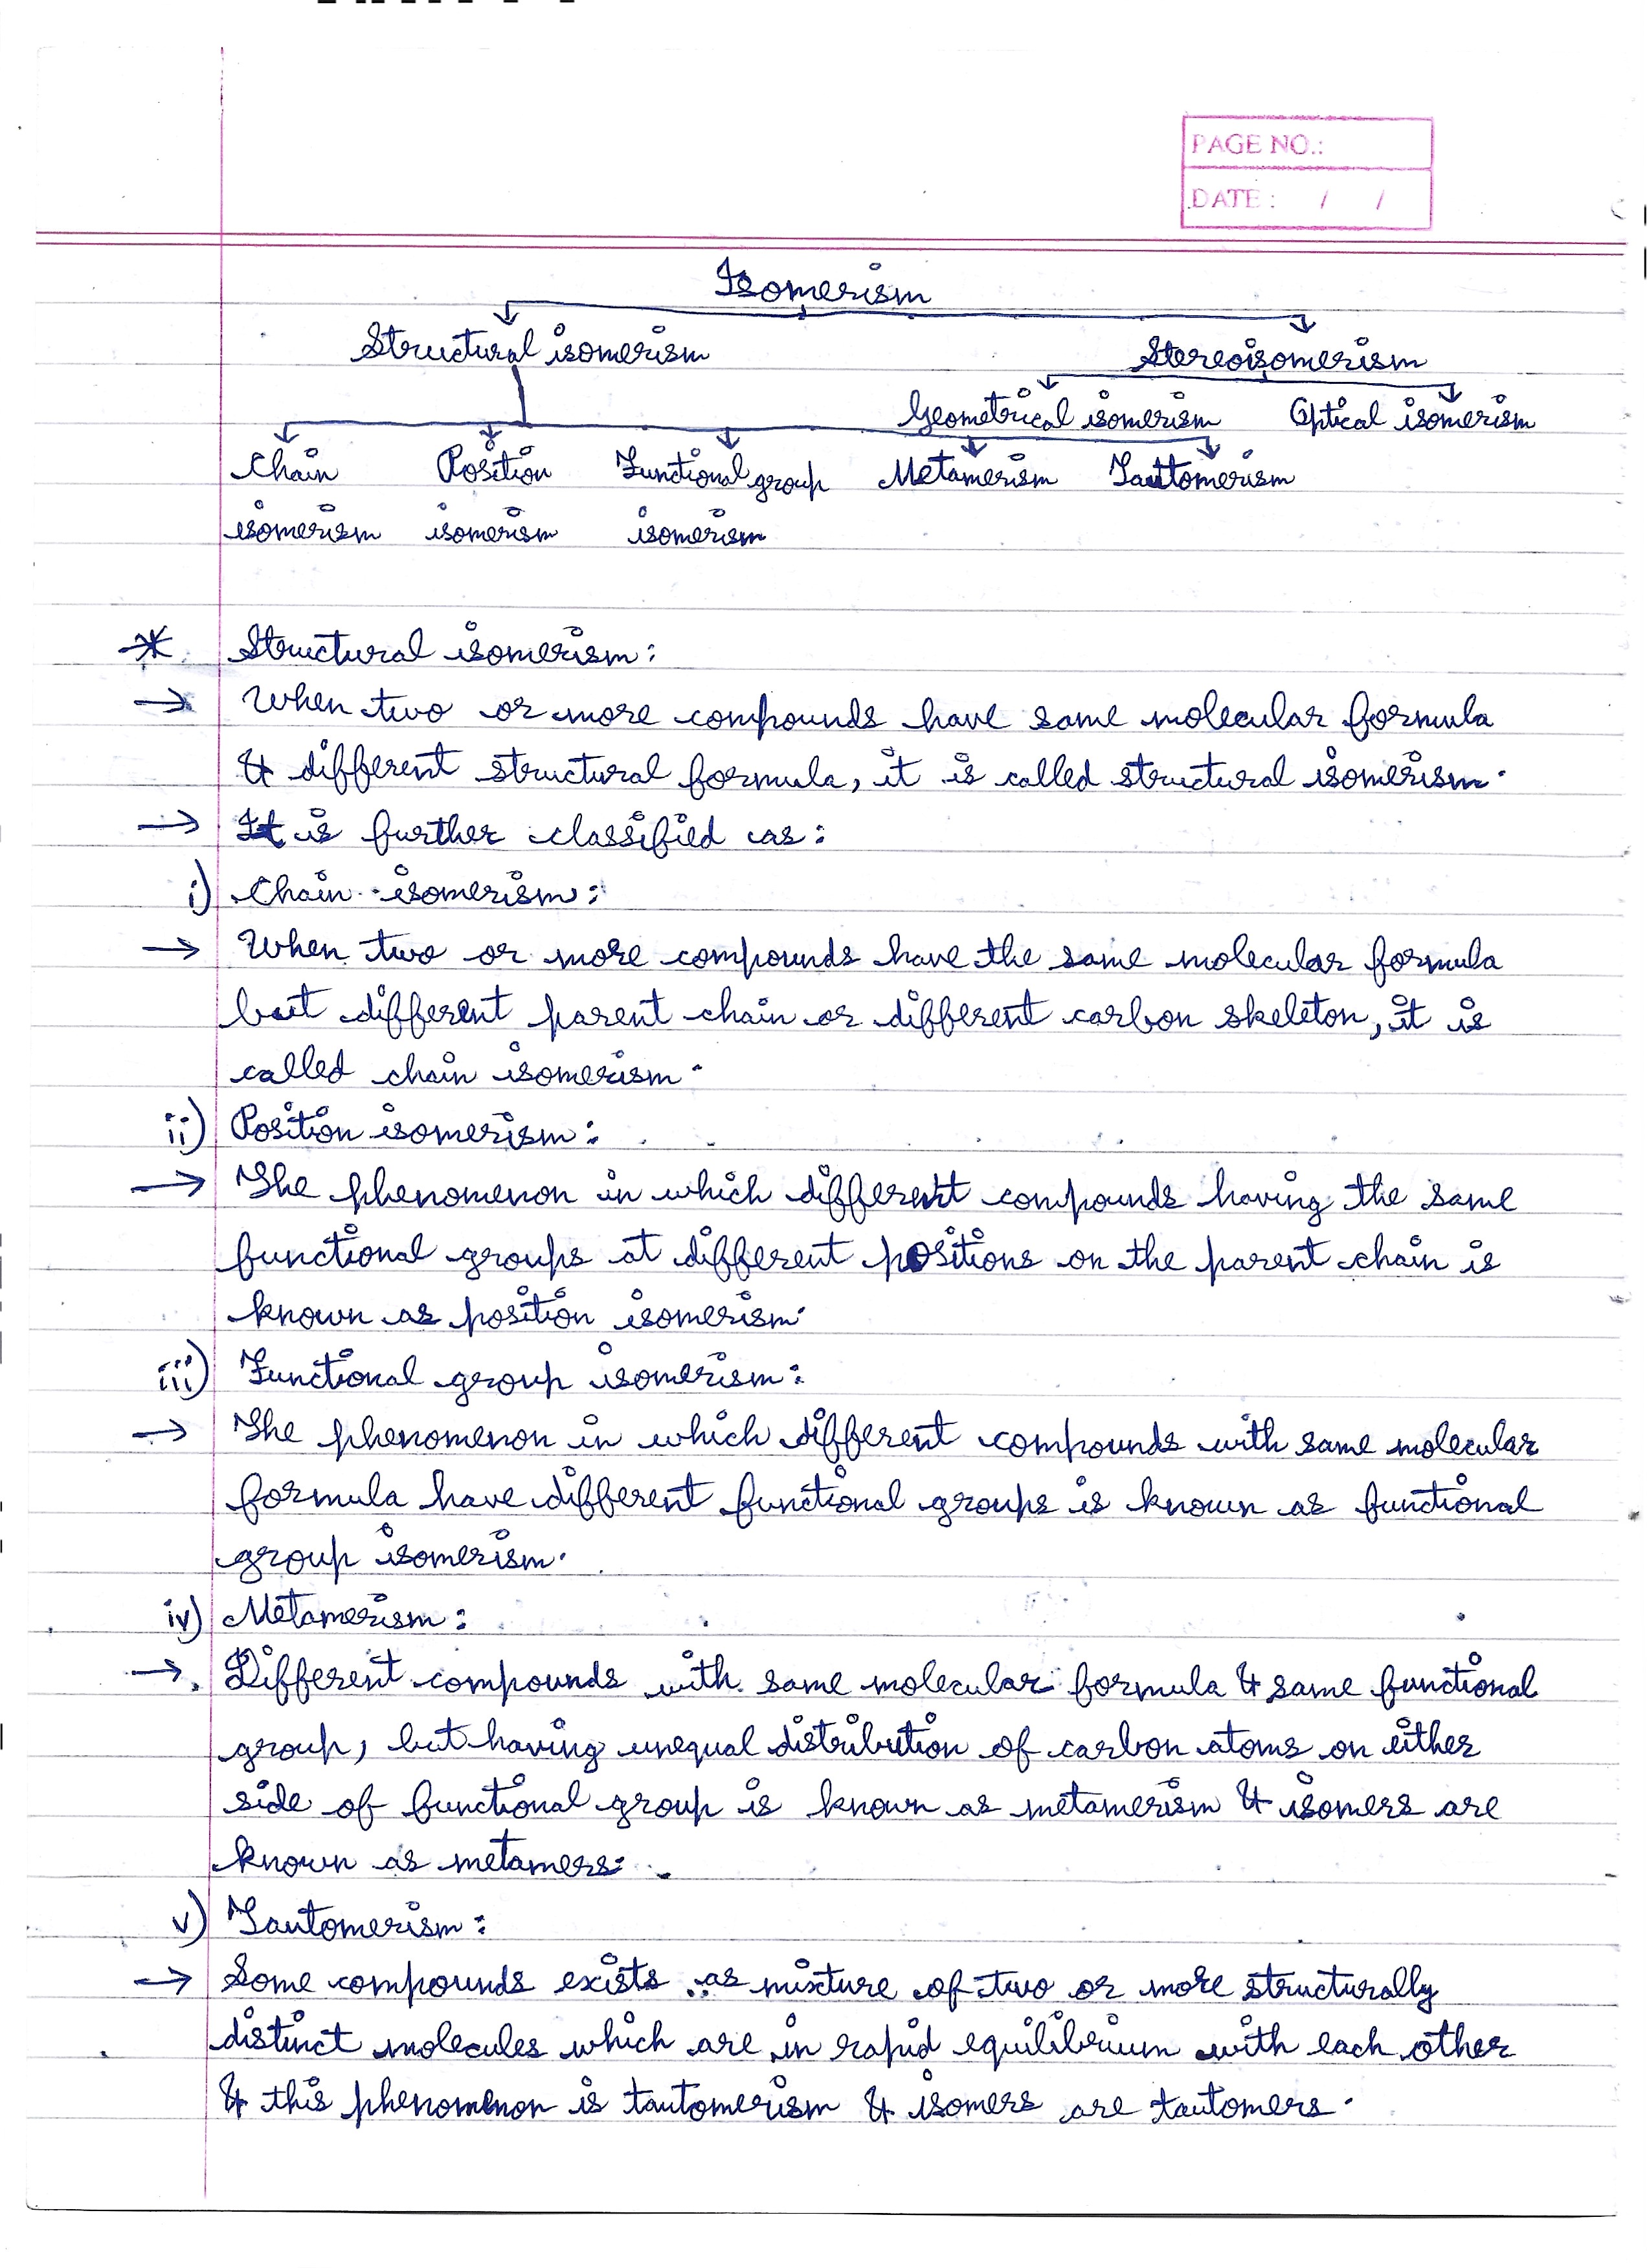 PAGE NO.:
DATE : / /
Isomerism
Structural isomerism Stereoisomerism
Geometrical isomerism Optical isomerism
Chain Position Functional group Metamerism Tautomerism
isomerism isomerism isomerism
* Structural isomerism:
→ When two or more compounds have same molecular formula
& different structural formula, it is called structural isomerism.
→ It is further classified as:
i) Chain isomerism:
→ When two or more compounds have the same molecular formula
but different parent chain or different carbon skeleton, it is
called chain isomerism.
ii) Position isomerism:
→ The phenomenon in which different compounds having the same
functional groups at different positions on the parent chain is
known as position isomerism.
iii) Functional group isomerism:
→ The phenomenon in which different compounds with same molecular
formula have different functional groups is known as functional
group isomerism.
iv) Metamerism:
→ Different compounds with same molecular formula & same functional
group, but having unequal distribution of carbon atoms on either
side of functional group is known as metamerism & isomers are
known as metamers.
v) Tautomerism:
→ Some compounds exists as mixture of two or more structurally
distinct molecules which are in rapid equilibrium with each other
& this phenomenon is tautomerism & isomers are tautomers.